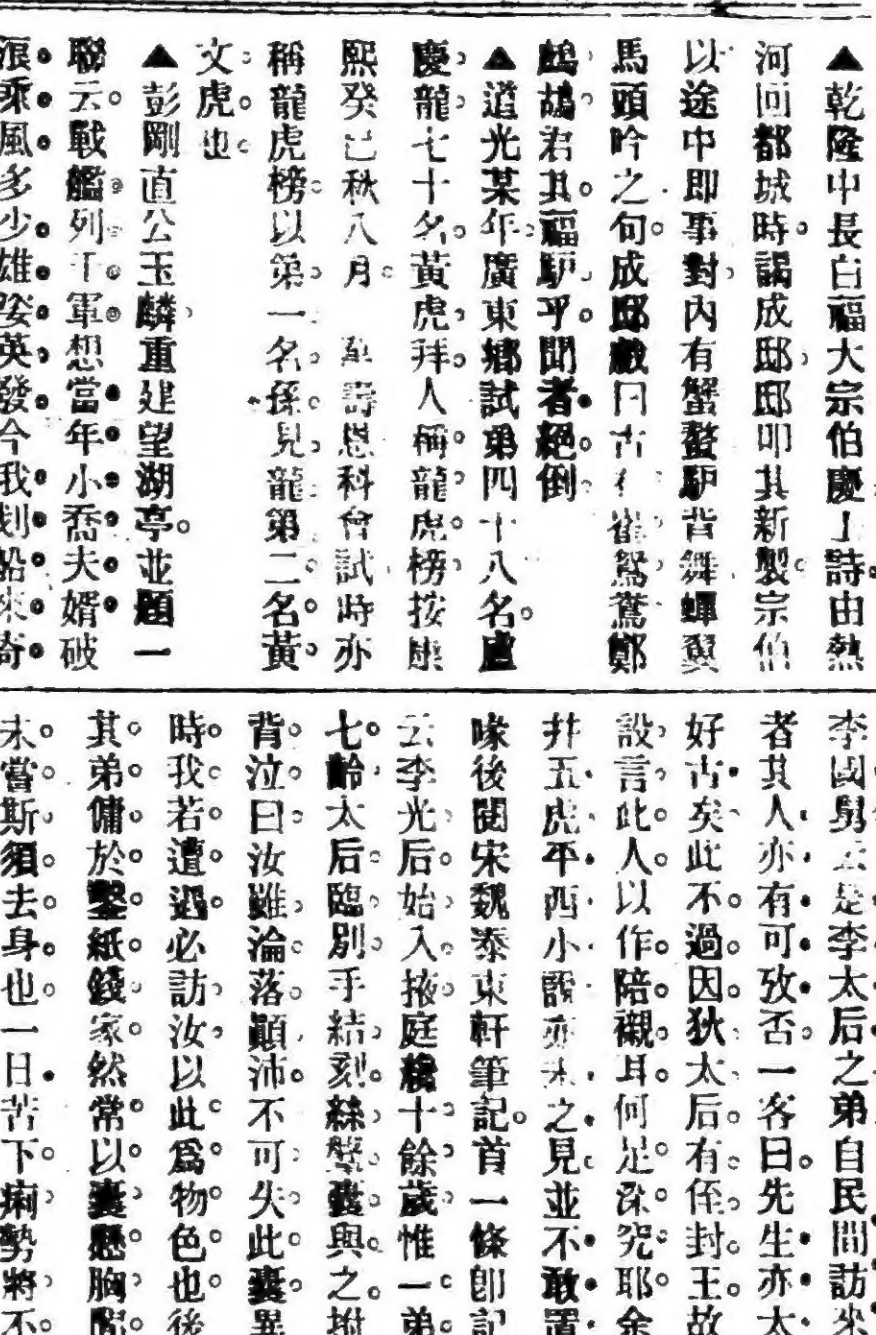 ▲乾隆中長白福大宗伯慶工詩由熱
河回都城時謁成邸邸叩其新製宗伯
以途中即事對內有蟹螯驢背舞蟬翼
馬頭吟之句成邸戲曰古有崔鴛鴦鄭
鷓鴣君其福驢乎聞者絕倒
▲道光某年廣東鄉試弟四十八名盧
慶龍七十名黃虎拜人稱龍虎榜按康
熙癸巳秋八月 萬壽恩科會試時亦
稱龍虎榜以第一名孫見龍第二名黃
文虎也
▲彭剛直公玉麟重建望湖亭並題一
聯云戰艦列千軍想當年小喬夫婿破
浪乘風多少雄姿英發今我划船來寄
李國舅云是李太后之弟自民間訪來
者其人亦有可攷否一客曰先生亦太
好古矣此不過因狄太后有侄封王故
設言此人以作陪襯耳何足深究耶余
并五虎平西小說亦未之見並不敢置
喙後閱宋魏泰東軒筆記首一條即記
云李光后始入掖庭纔十餘歲惟一弟
七齡太后臨別手結刻絲鞶囊與之拊
背泣曰汝雖淪落顛沛不可失此囊異
時我若遭遇必訪汝以此爲物色也後
其弟傭於鑿紙錢家然常以囊懸胸間
未嘗斯須去身也一日苦下痢勢將不